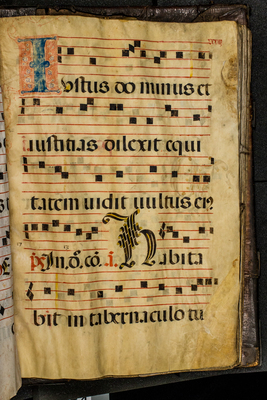 Iustus do minus et
iustitias dilexit equi
tatem uidit uultus ei9
ps. In. o. co. i. Habita
bit in tabernaculo tu